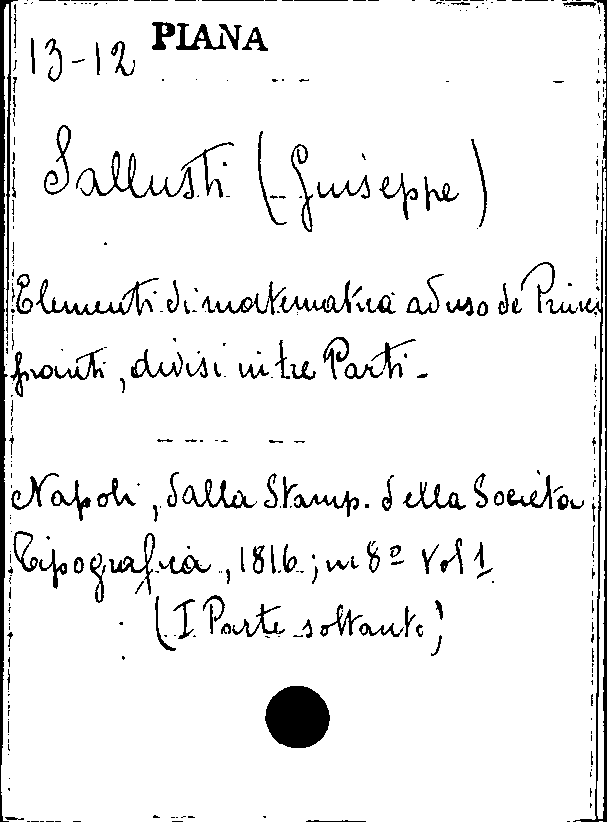 13-12 PIANA
Sallusti (Giuseppe)
Elementi di matematica ad uso de' Princi
pianti, divisi in tre Parti -
Napoli, dalla Stamp. della Società
Tipografica, 1816; in 8º Vol 1
(I Parte soltanto)